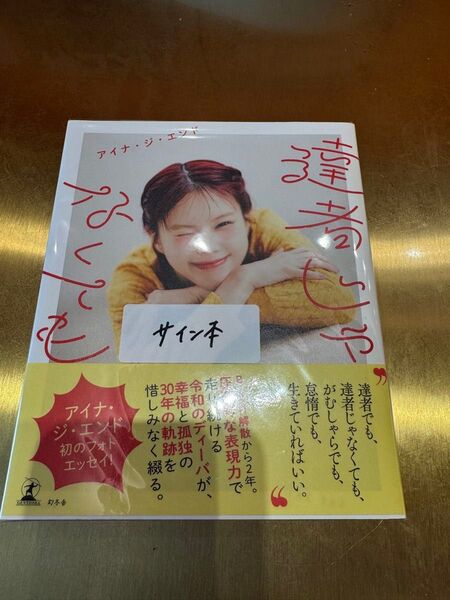 アイナ・ジ・エンド
達者じゃ
なくても
サイン本
達者でも、
達者じゃなくても、
がむしゃらでも、
怠惰でも、
生きていればいい。
解散から2年。
な表現力で
走り続ける
令和のディーバが、
幸福と孤独の
30年の軌跡を
惜しみなく綴る。
アイナ・
ジ・エンド
初のフォト
エッセイ!
幻冬舎